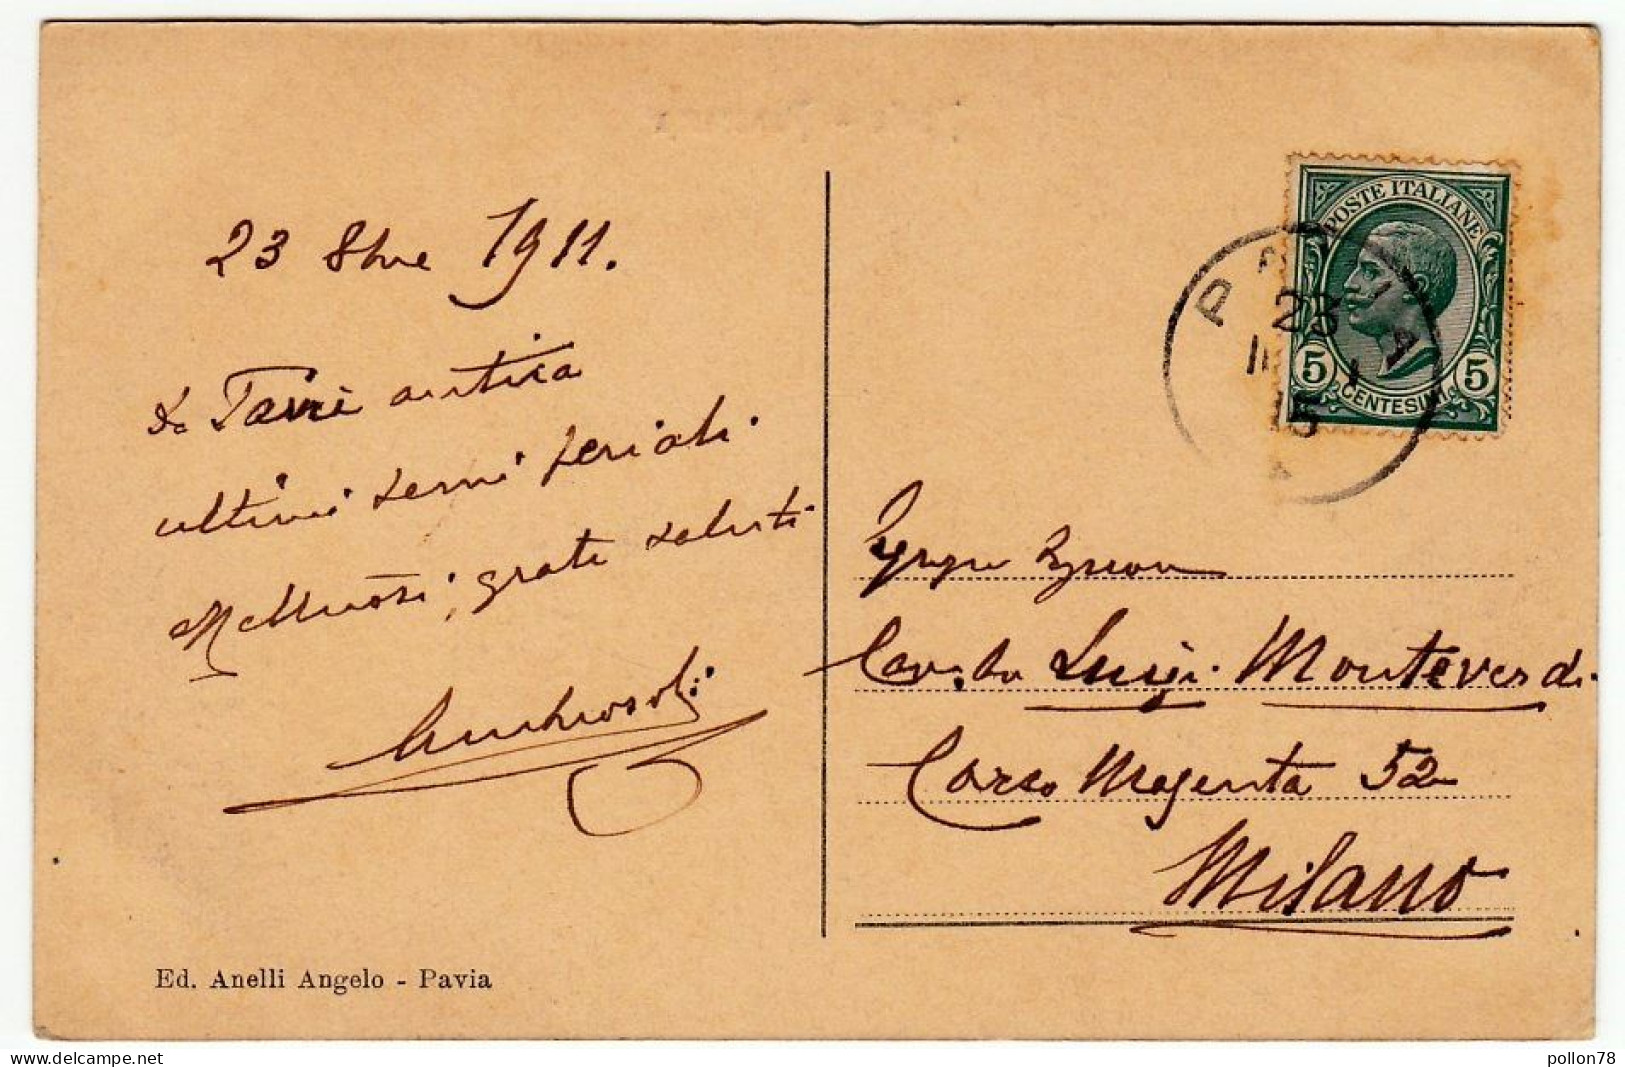 23 8bre 1911.
da Pavia antica
ultimi servi feriali.
Affettuosi, grati saluti
Ambrosoli
Ed. Anelli Angelo - Pavia
POSTE ITALIANE
5 CENTESIMI 5
PAVIA
23
15
Egregio Signor
Cav. Luigi Monteverdi
Corso Magenta 52
Milano
delcampe.net
pollon78